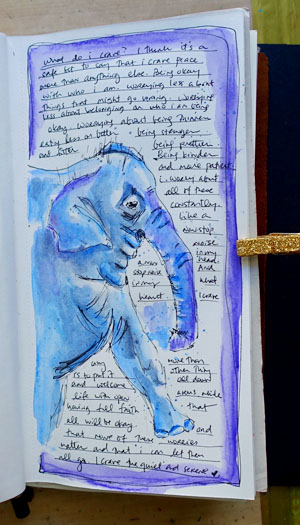 What do i crave? I think it's a
safe bet to say that I crave peace
more than anything else. Being okay
with who i am. worrying less about
things that might go wrong. worrying
less about belonging or who i am being
okay. worrying about being thinner
eating less or better - being stronger
and fitter being prettier.
Being kinder
and more patient
i worry about
all of these
constantly.
Like a
nonstop
noise
in my
head.
And
what
I crave
a non
stop noise
in my
heart
more than
other thing
is to put it all down
and welcome
life with open arms while
having full faith that
all will be okay. and
that none of these worries
matter and that i can let them
all go. I crave the quiet and serene